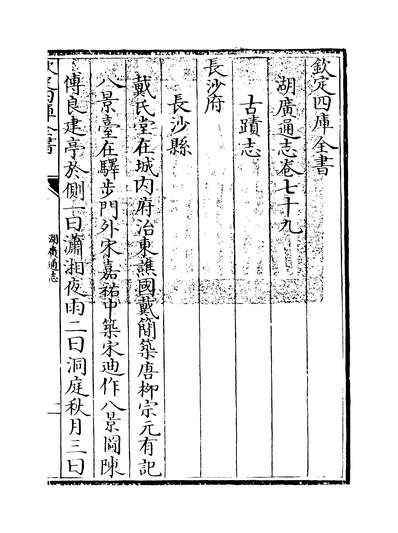 欽定四庫全書
湖廣通志卷七十九
古蹟志
長沙府
長沙縣
戴氏堂在城内府治東譙國戴簡築唐柳宗元有記
八景臺在驛步門外宋嘉祐中築宋迪作八景圖陳
傅良建亭於側一曰瀟湘夜雨二曰洞庭秋月三曰
欽定四庫全書
湖廣通志
一